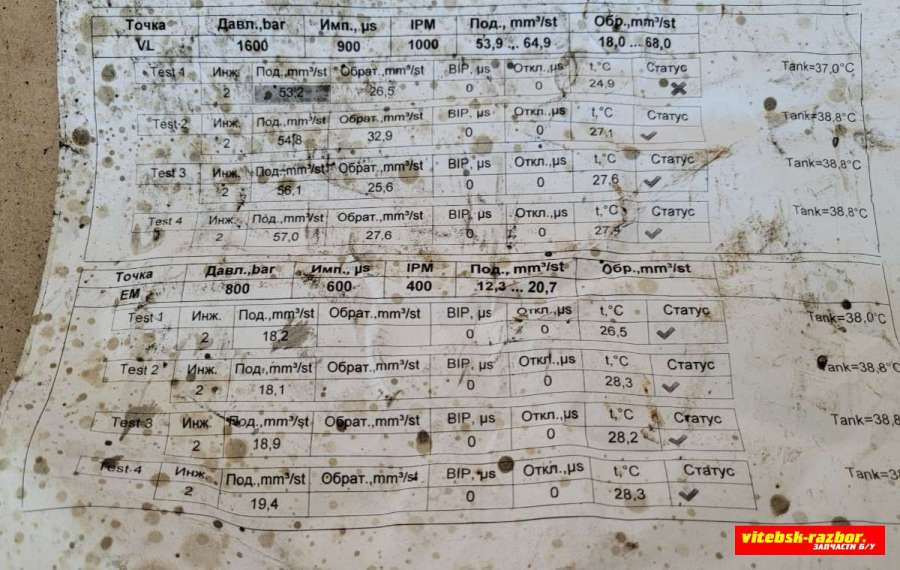 Точка Давл.,bar Имп., µs IPM Под., mm³/st Обр.,mm³/st
VL 1600 900 1000 53,9 ... 64,9 18,0 ... 68,0
Test 1 Инж. Под.,mm³/st Обрат.,mm³/st BIP, µs Откл.,µs t,°C Статус Tank=37,0°C
2 53,2 26,5 0 0 24,9
Test 2 Инж. Под.,mm³/st Обрат.,mm³/st BIP, µs Откл.,µs t,°C Статус Tank=38,8°C
2 54,8 32,9 0 0 27,1
Test 3 Инж. Под.,mm³/st Обрат.,mm³/st BIP, µs Откл.,µs t,°C Статус Tank=38,8°C
2 56,1 25,6 0 0 27,6
Test 4 Инж. Под.,mm³/st Обрат.,mm³/st BIP, µs Откл.,µs t,°C Статус Tank=38,8°C
2 57,0 27,6 0 0
Точка Давл.,bar Имп., µs IPM Под., mm³/st Обр.,mm³/st
EM 800 600 400 12,3 ... 20,7
Test 1 Инж. Под.,mm³/st Обрат.,mm³/st BIP, µs Откл.,µs t,°C Статус Tank=38,0°C
2 18,2 0 0 26,5
Test 2 Инж. Под.,mm³/st Обрат.,mm³/st BIP, µs Откл.,µs t,°C Статус Tank=38,8°C
2 18,1 0 0 28,3
Test 3 Инж. Под.,mm³/st Обрат.,mm³/st BIP, µs Откл.,µs t,°C Статус Tank=38,8
2 18,9 0 0 28,2
Test 4 Инж. Под.,mm³/st Обрат.,mm³/st BIP, µs Откл.,µs t,°C Статус Tank=38
2 19,4 0 0 28,3
vitebsk-razbor.
ЗАПЧАСТИ Б/У